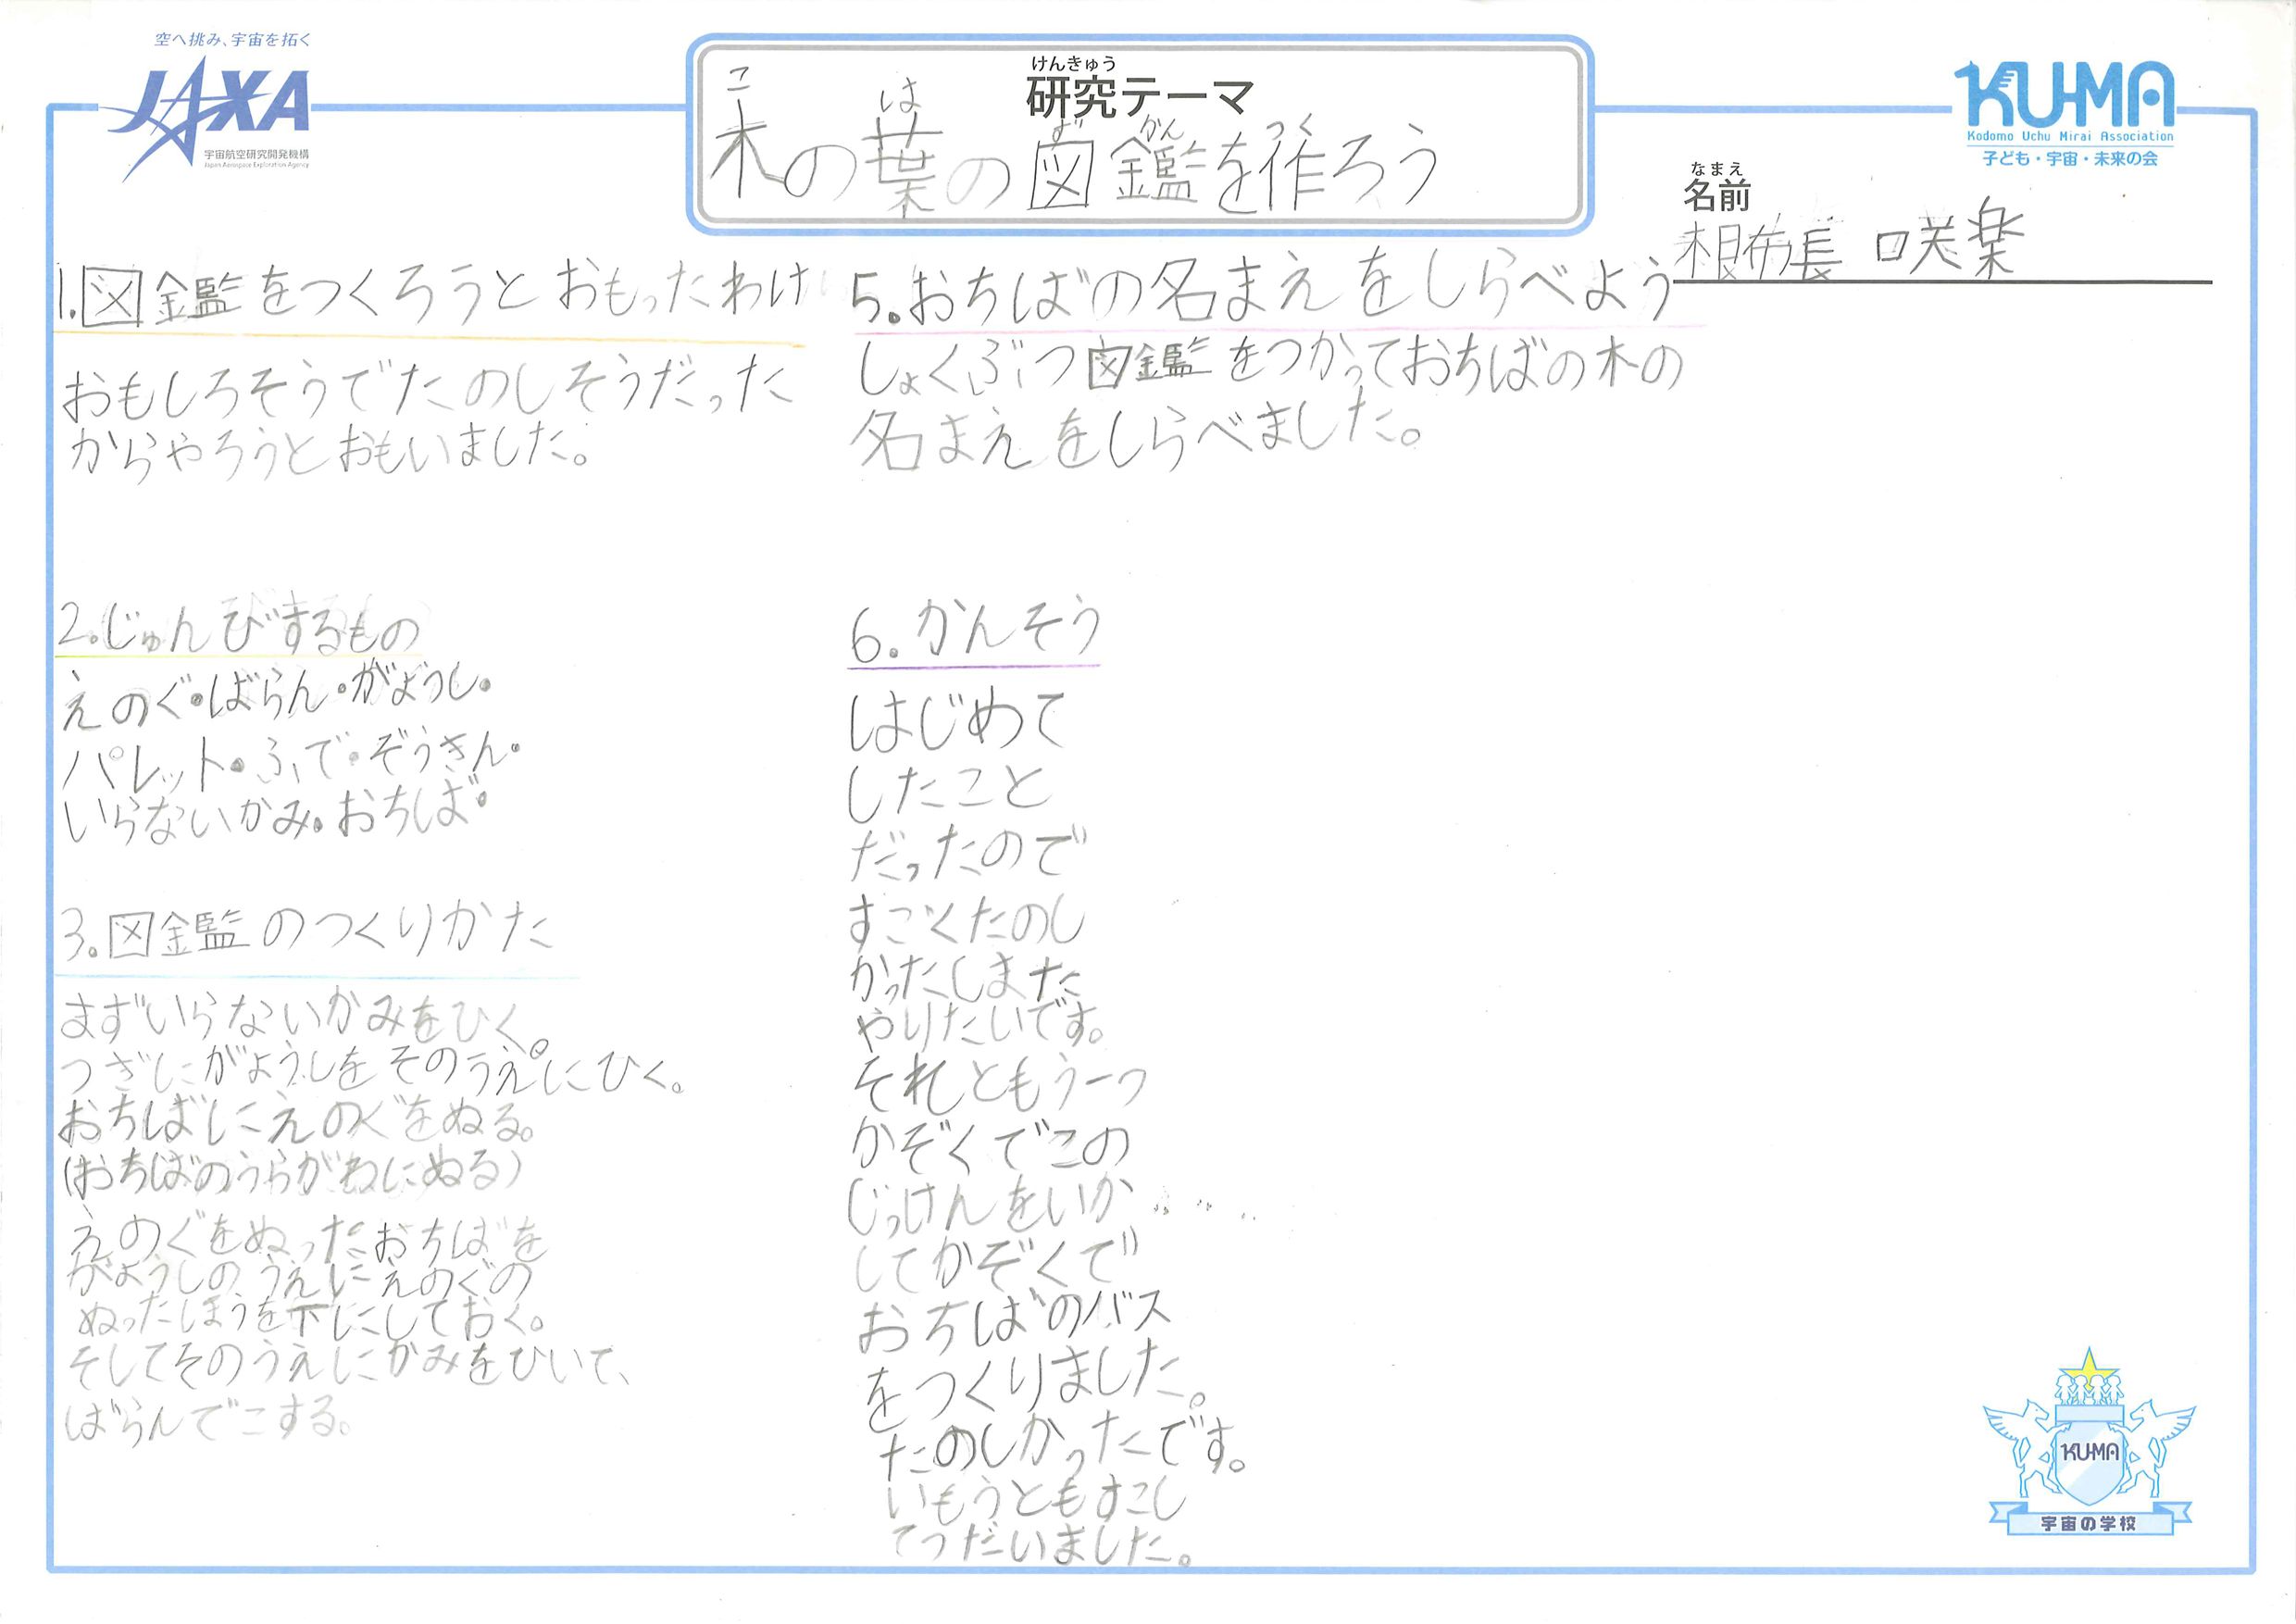 空へ挑み、宇宙を拓く
JAXA
宇宙航空研究開発機構
Japan Aerospace Exploration Agency
けんきゅう
研究テーマ
こ は ず かん つく
木の葉の図鑑を作ろう
KUMA
Kodomo Uchu Mirai Association
子ども・宇宙・未来の会
なまえ
名前
根布長 咲楽
1.図鑑をつくろうとおもったわけ
おもしろそうでたのしそうだった
からやろうとおもいました。
2.じゅんびするもの
えのぐ・ばらん・がようし・
パレット・ふで・ぞうきん・
いらないかみ・おちば・
3.図鑑のつくりかた
まずいらないかみをひく。
つぎにがようしをそのうえにひく。
おちばにえのぐをぬる。
(おちばのうらがわにぬる)
えのぐをぬったおちばを
がようしのうえにえのぐの
ぬったほうを下にしておく。
そしてそのうえにかみをひいて、
ばらんでこする。
5.おちばの名まえをしらべよう
しょくぶつ図鑑をつかっておちばの木の
名まえをしらべました。
6.かんそう
はじめて
したこと
だったので
すごくたのし
かったしまた
やりたいです。
それともう一つ
かぞくでこの
じっけんをいか
してかぞくで
おちばのバス
をつくりました。
たのしかったです。
いもうともすこし
てつだいました。
KUMA
宇宙の学校